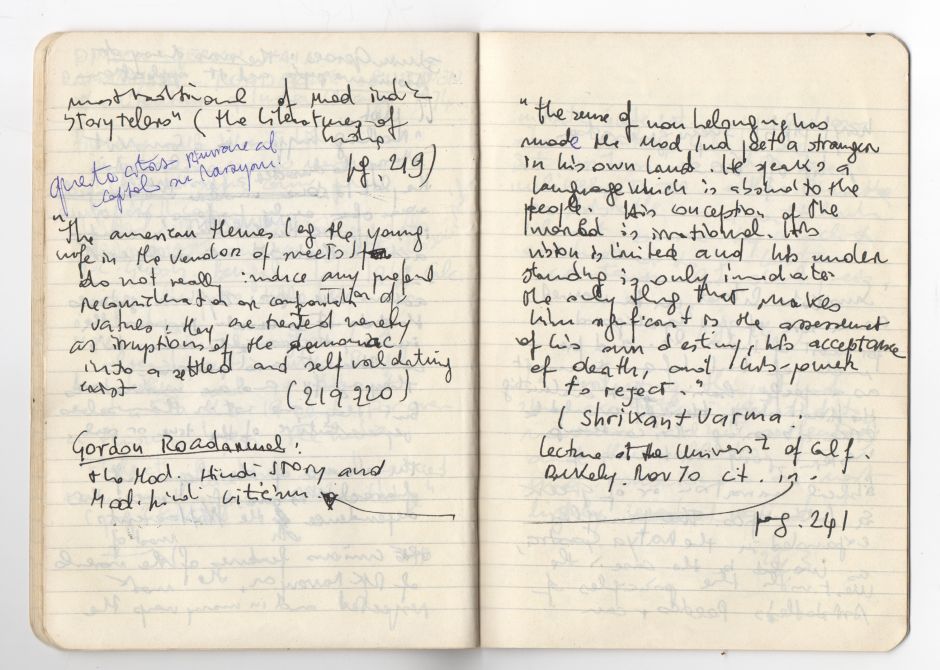 most traditional of mod ind
Storytelers" (the Literatures of
India
pg. 219)
questa citaz
capitolo su Narayan!
"The american themes (eg the young
wife in the vendor of sweets)
do not really induce any profond
reconsideration or confrontation of
values, they are treated merely
as irruptions of the demoniac
into a settled and self validating
(219 220)
Gordon Roadarmel:
the Mod. Hindi Story and
Mod. hindi Criticism.
"the sense of non belonging has
made the Mod Ind poet a stranger
in his own land. He speaks a
language which is absurd to the
people. His conception of the
world is irrational. His
vision is limited and his under
standing is only imediate
the only thing that makes
him significant is the assessment
of his own destiny, his acceptance
of death, and his power
to reject."
( Shrikant Varma.
lecture at the University of Calf.
Berkely. Nov 70 cit. in.
pg. 241